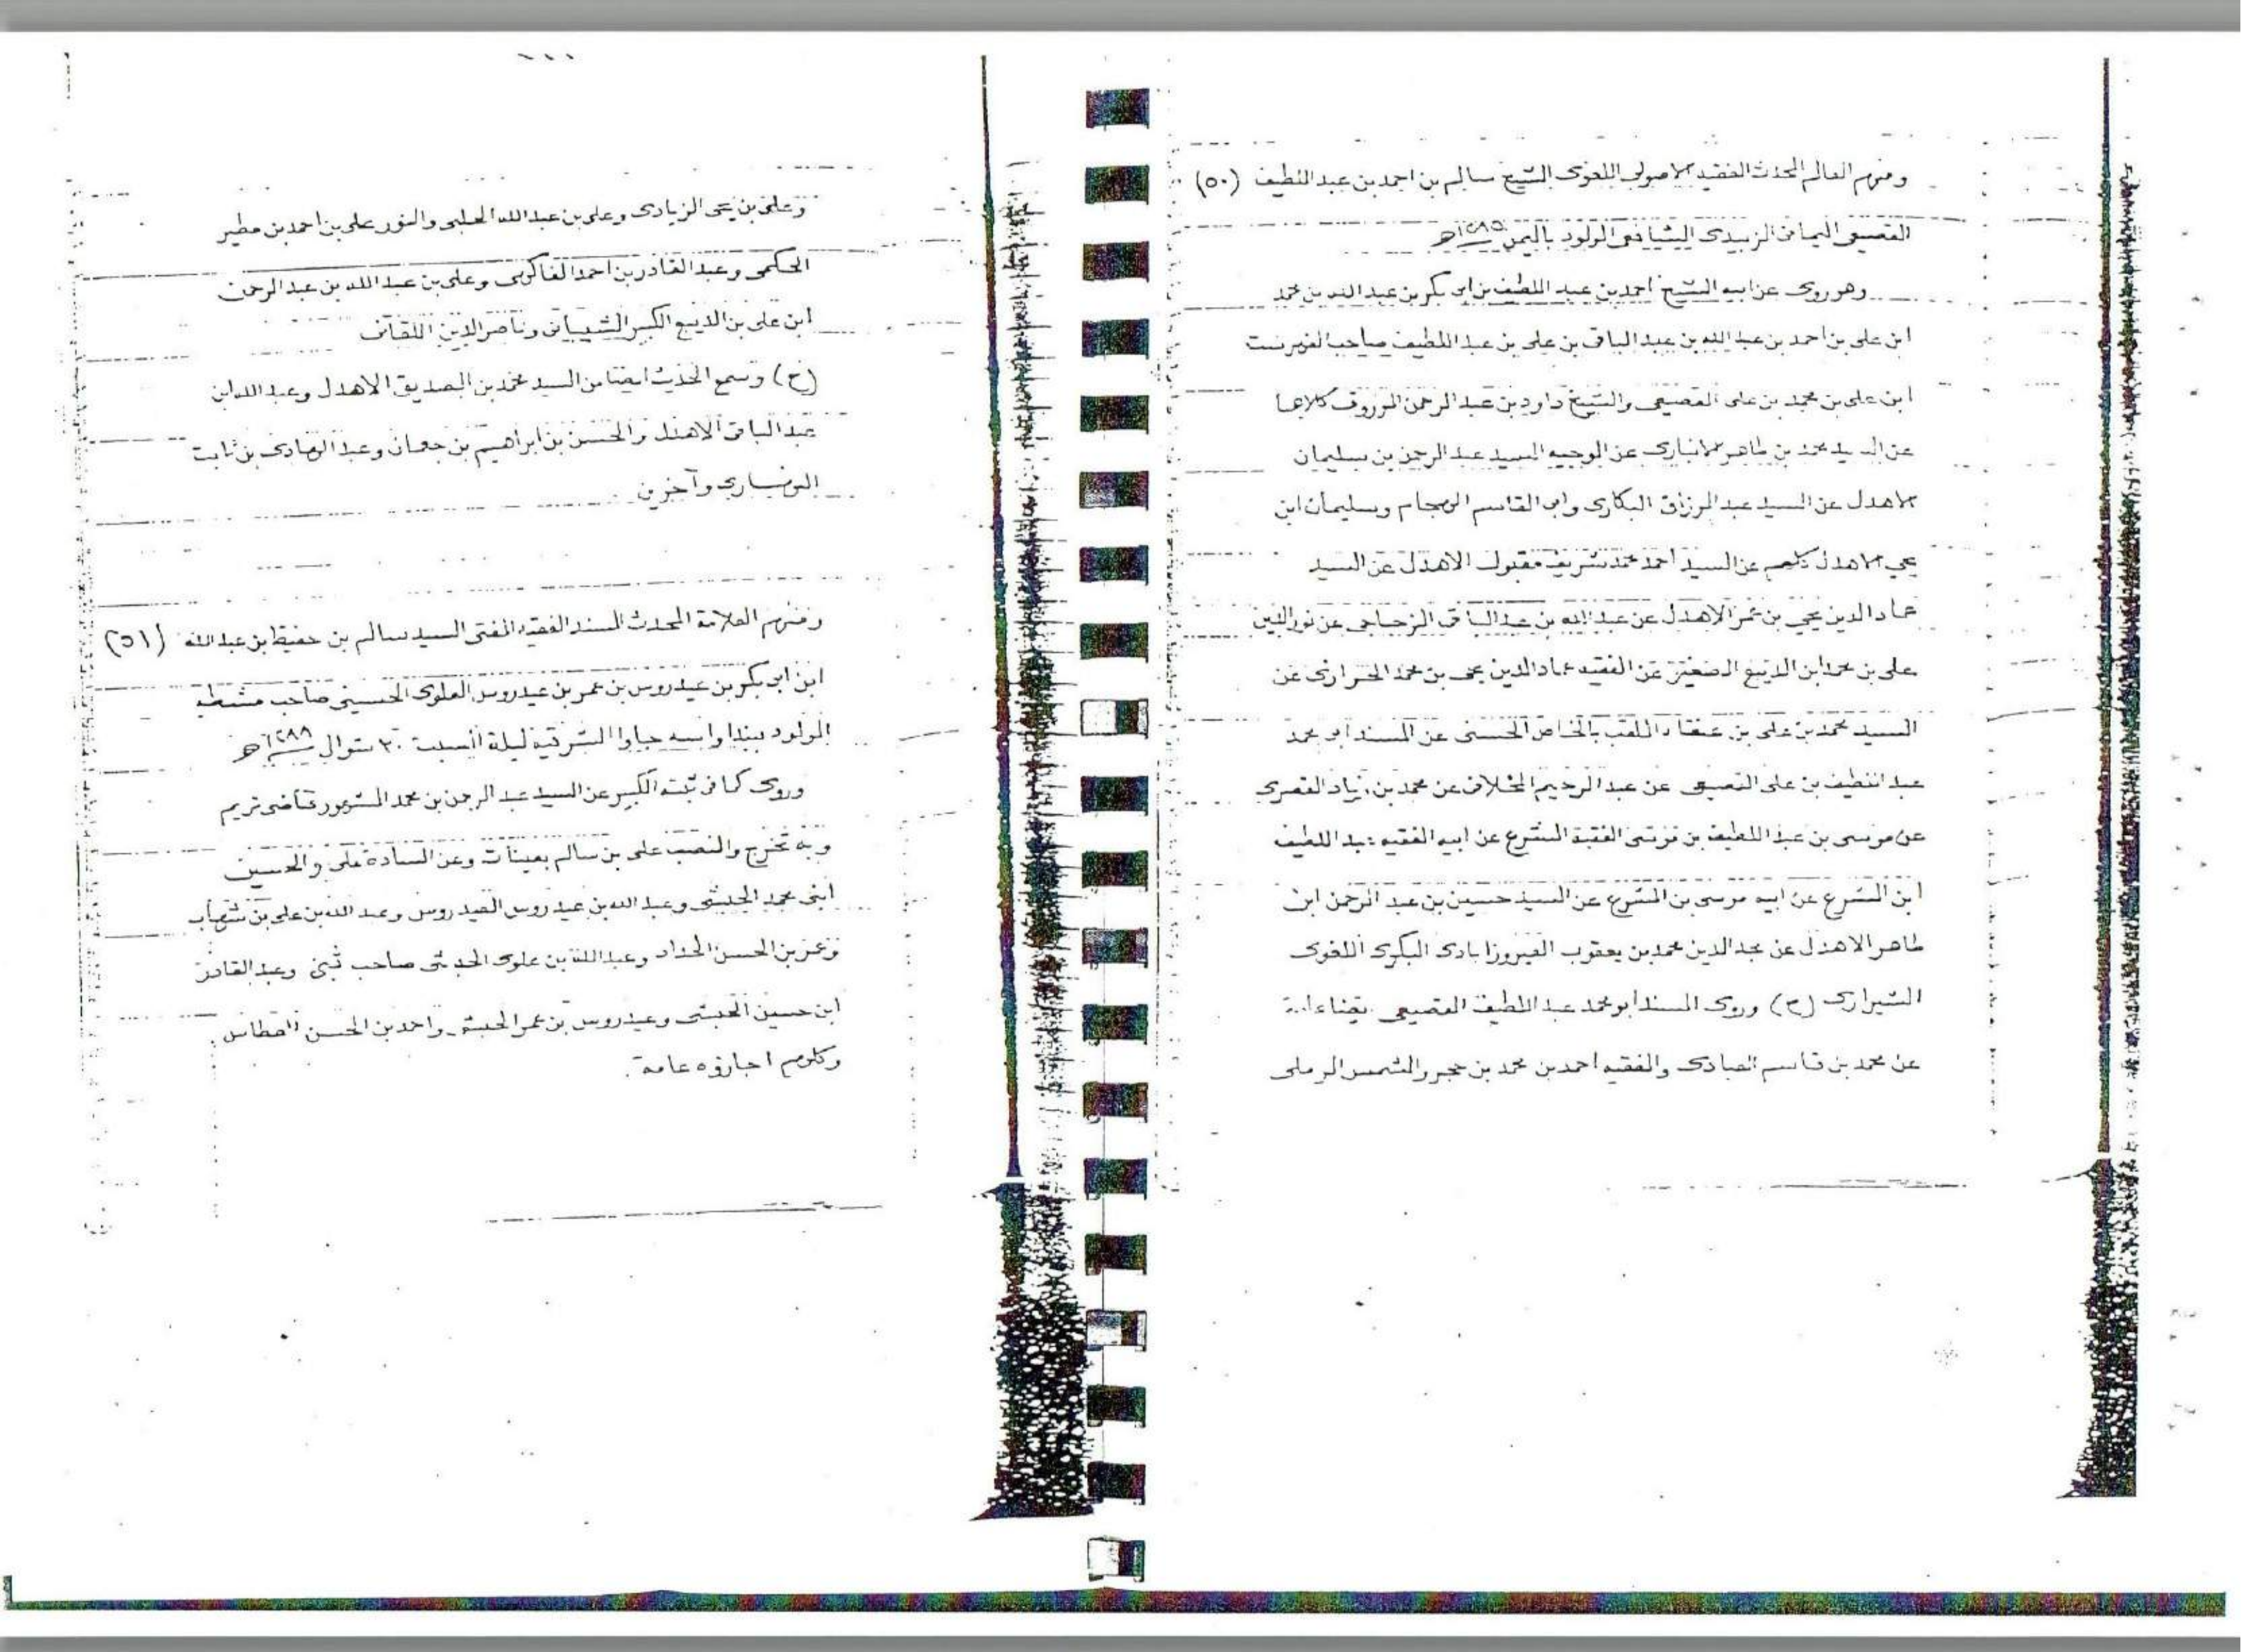 ومنهم العالم المحدث الفقيه الاصولى اللغوى الشيخ سالم بن احمد بن عبد اللطيف (٥٠)
القصيعى اليمانى الزبيدى الشافعى المولود باليمن
وهو روى عن ابيه الشيخ احمد بن عبد اللطيف بن ابى بكر بن عبد الله بن محمد
ابن على بن احمد بن عبد الله بن عبد الباقى بن على بن عبد اللطيف صاحب الفهرست
ابن على بن محمد بن على القصيعى والشيخ داود بن عبد الرحمن كلاهما
عن السيد محمد بن طاهر الانبارى عن الوجيه السيد عبد الرحمن بن سليمان
الاهدل عن السيد عبد الرزاق البكارى وابى القاسم الهجام وسليمان ابن
يحي الاهدل كلهم عن السيد احمد محمد شريف مقبول الاهدل عن السيد
عماد الدين يحي بن عمر الاهدل عن عبد الله بن عبد الباقى المزجاجى عن نور الدين
على بن محمد ابن الديبع الصغير عن الفقيه عماد الدين يحى بن محمد الحرازى عن
السيد محمد بن على بن الملقب بالخاص الحسنى عن المسند ابو محمد
عبد اللطيف بن على القصيعى عن عبد الرحيم المخلافى عن محمد بن زياد القصرى
عن موسى بن عبد اللطيف بن موسى الفقيه المشرع عن ابيه الفقيه عبد اللطيف
ابن المشرع عن ابيه موسى بن المشرع عن السيد حسين بن عبد الرحمن ابن
طاهر الاهدل عن مجد الدين محمد بن يعقوب الفيروزابادى البكرى اللغوى
الشيرازى (ح) وروى المسند ابو محمد عبد اللطيف القصيعى ايضا
عن محمد بن قاسم العبادى والفقيه احمد بن محمد بن حجر والشمس الرملى
وعلى بن يحى الزيادى وعلى بن عبد الله الحلبى والنور على بن احمد بن مطير
الحكمى وعبد القادر بن احمد الفاكهى وعلى بن عبد الله بن عبد الرحمن
ابن على بن الديبع الكبير الشيبانى وناصر الدين اللقانى
(ح) وسمع الحديث ايضا من السيد محمد بن الصديق الاهدل وعبد الله ابن
عبد الباقى الاهدل والحسن بن ابراهيم بن جعمان وعبد الهادى بن ثابت
وآخرين
ومنهم العلامة المحدث المسند الفقيه المفتى السيد سالم بن حفيظ بن عبد الله (٥١)
ابن ابى بكر بن عيدروس بن عمر بن عيدروس العلوى الحسينى صاحب مشطه
المولود ببنداواسه جاوا الشرقيه ليلة السبت ٣٠ شوال ١٢٨٨ه
وروى كما فى ثبته الكبير عن السيد عبد الرحمن بن محمد المشهور قاضى تريم
وبه تخرج والنصب على بن سالم بعينات وعن السادة على والحسين
ابنى محمد الحبشى وعبد الله بن عيدروس العيدروس وعبد الله بن على بن شهاب
وعمر بن الحسن الحداد وعبد الله بن علوى الحبشى صاحب ثبى وعبد القادر
ابن حسين الحبشى وعيدروس بن عمر الحبشى واحمد بن الحسن العطاس
وكلهم اجازوه عامة